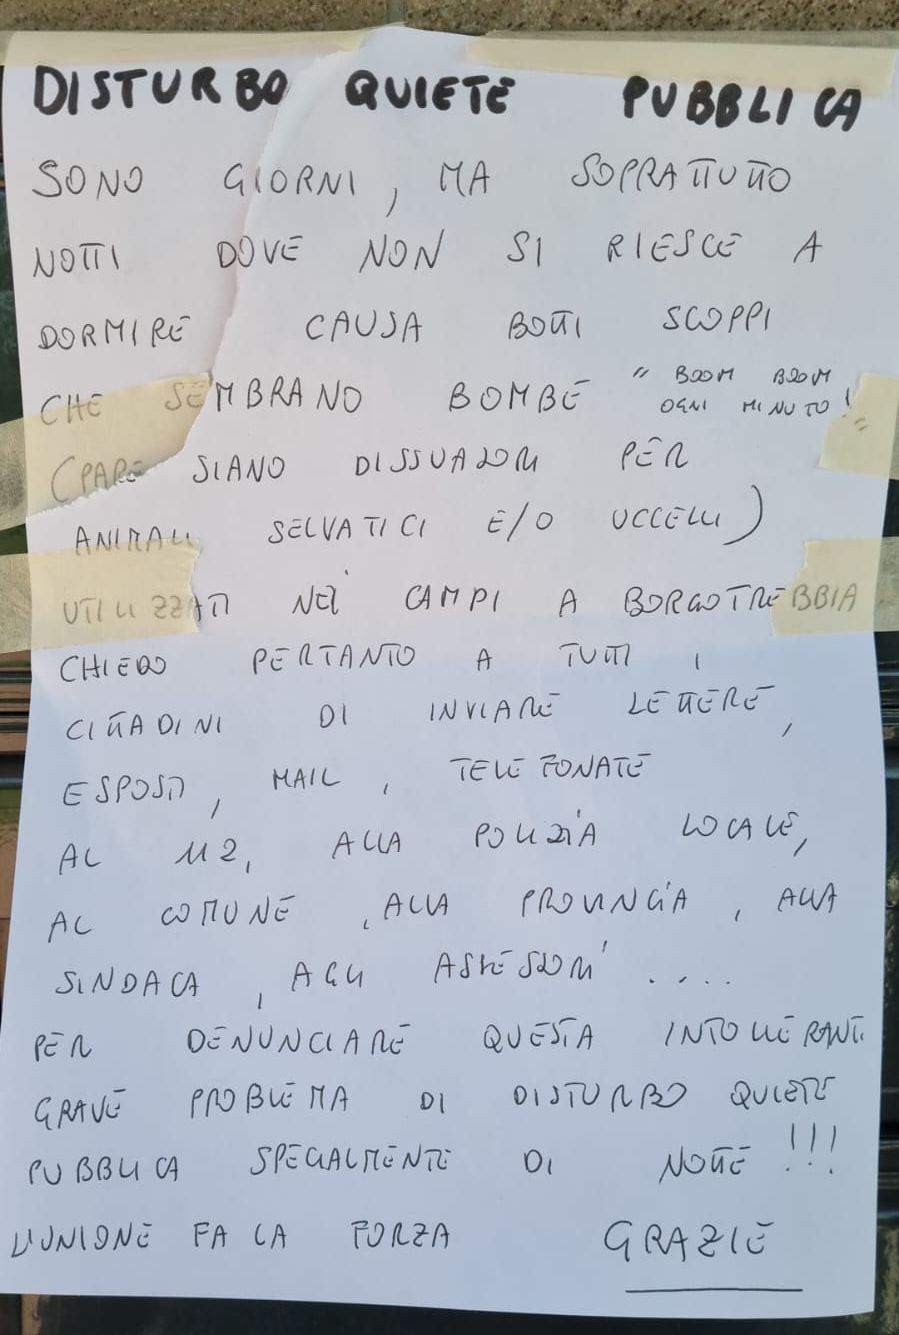 DISTURBO QUIETE PUBBLICA
SONO GIORNI, MA SOPRATTUTTO
NOTTI DOVE NON SI RIESCE A
DORMIRE CAUSA BOTTI SCOPPI
CHE SEMBRANO BOMBE " BOOM BOOM
OGNI MINUTO! "
(PARE SIANO DISSUASORI PER
ANIMALI SELVATICI E/O UCCELLI)
UTILIZZATI NEI CAMPI A BORGOTREBBIA
CHIEDO PERTANTO A TUTTI I
CITTADINI DI INVIARE LETTERE,
ESPOSTI, MAIL, TELEFONATE
AL 112, ALLA POLIZIA LOCALE,
AL COMUNE, ALLA PROVINCIA, ALLA
SINDACA, AGLI ASSESSORI ....
PER DENUNCIARE QUESTA
GRAVE PROBLEMA DI DISTURBO QUIETE
PUBBLICA SPECIALMENTE DI NOTTE !!!
L'UNIONE FA LA FORZA GRAZIE